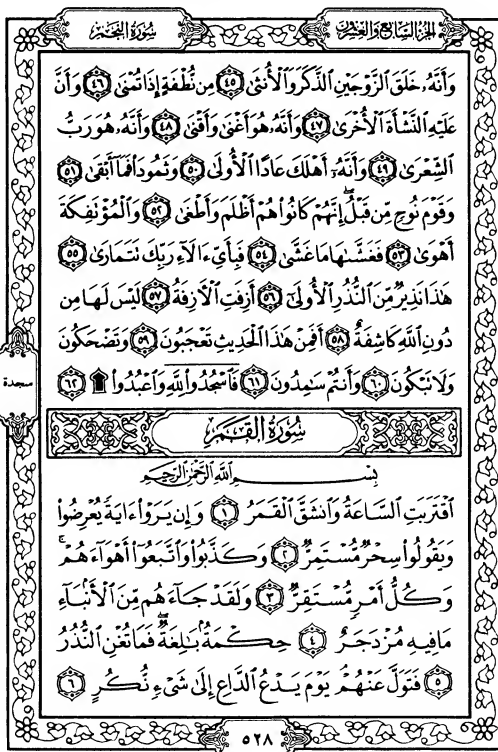 سُورَةُ النَّجْمِ
الجُزْءُ السَّابِعُ وَالعِشْرُونَ
وَأَنَّهُۥ خَلَقَ ٱلزَّوْجَيْنِ ٱلذَّكَرَ وَٱلْأُنثَىٰ ٤٥ مِن نُّطْفَةٍ إِذَا تُمْنَىٰ ٤٦ وَأَنَّ
عَلَيْهِ ٱلنَّشْأَةَ ٱلْأُخْرَىٰ ٤٧ وَأَنَّهُۥ هُوَ أَغْنَىٰ وَأَقْنَىٰ ٤٨ وَأَنَّهُۥ هُوَ رَبُّ
ٱلشِّعْرَىٰ ٤٩ وَأَنَّهُۥٓ أَهْلَكَ عَادًا ٱلْأُولَىٰ ٥٠ وَثَمُودَا۟ فَمَآ أَبْقَىٰ ٥١
وَقَوْمَ نُوحٍ مِّن قَبْلُ ۖ إِنَّهُمْ كَانُوا۟ هُمْ أَظْلَمَ وَأَطْغَىٰ ٥٢ وَٱلْمُؤْتَفِكَةَ
أَهْوَىٰ ٥٣ فَغَشَّىٰهَا مَا غَشَّىٰ ٥٤ فَبِأَىِّ ءَالَآءِ رَبِّكَ تَتَمَارَىٰ ٥٥
هَٰذَا نَذِيرٌ مِّنَ ٱلنُّذُرِ ٱلْأُولَىٰٓ ٥٦ أَزِفَتِ ٱلْـَٔازِفَةُ ٥٧ لَيْسَ لَهَا مِن
دُونِ ٱللَّهِ كَاشِفَةٌ ٥٨ أَفَمِنْ هَٰذَا ٱلْحَدِيثِ تَعْجَبُونَ ٥٩ وَتَضْحَكُونَ
وَلَا تَبْكُونَ ٦٠ وَأَنتُمْ سَٰمِدُونَ ٦١ فَٱسْجُدُوا۟ لِلَّهِ وَٱعْبُدُوا۟ ۩ ٦٢
سجدة
سُورَةُ القَمَرِ
بِسْمِ ٱللَّهِ ٱلرَّحْمَٰنِ ٱلرَّحِيمِ
ٱقْتَرَبَتِ ٱلسَّاعَةُ وَٱنشَقَّ ٱلْقَمَرُ ١ وَإِن يَرَوْا۟ ءَايَةً يُعْرِضُوا۟
وَيَقُولُوا۟ سِحْرٌ مُّسْتَمِرٌّ ٢ وَكَذَّبُوا۟ وَٱتَّبَعُوٓا۟ أَهْوَآءَهُمْ ۚ
وَكُلُّ أَمْرٍ مُّسْتَقِرٌّ ٣ وَلَقَدْ جَآءَهُم مِّنَ ٱلْأَنۢبَآءِ
مَا فِيهِ مُزْدَجَرٌ ٤ حِكْمَةٌۢ بَٰلِغَةٌ ۖ فَمَا تُغْنِ ٱلنُّذُرُ
٥ فَتَوَلَّ عَنْهُمْ ۘ يَوْمَ يَدْعُ ٱلدَّاعِ إِلَىٰ شَىْءٍ نُّكُرٍ ٦
٥٢٨